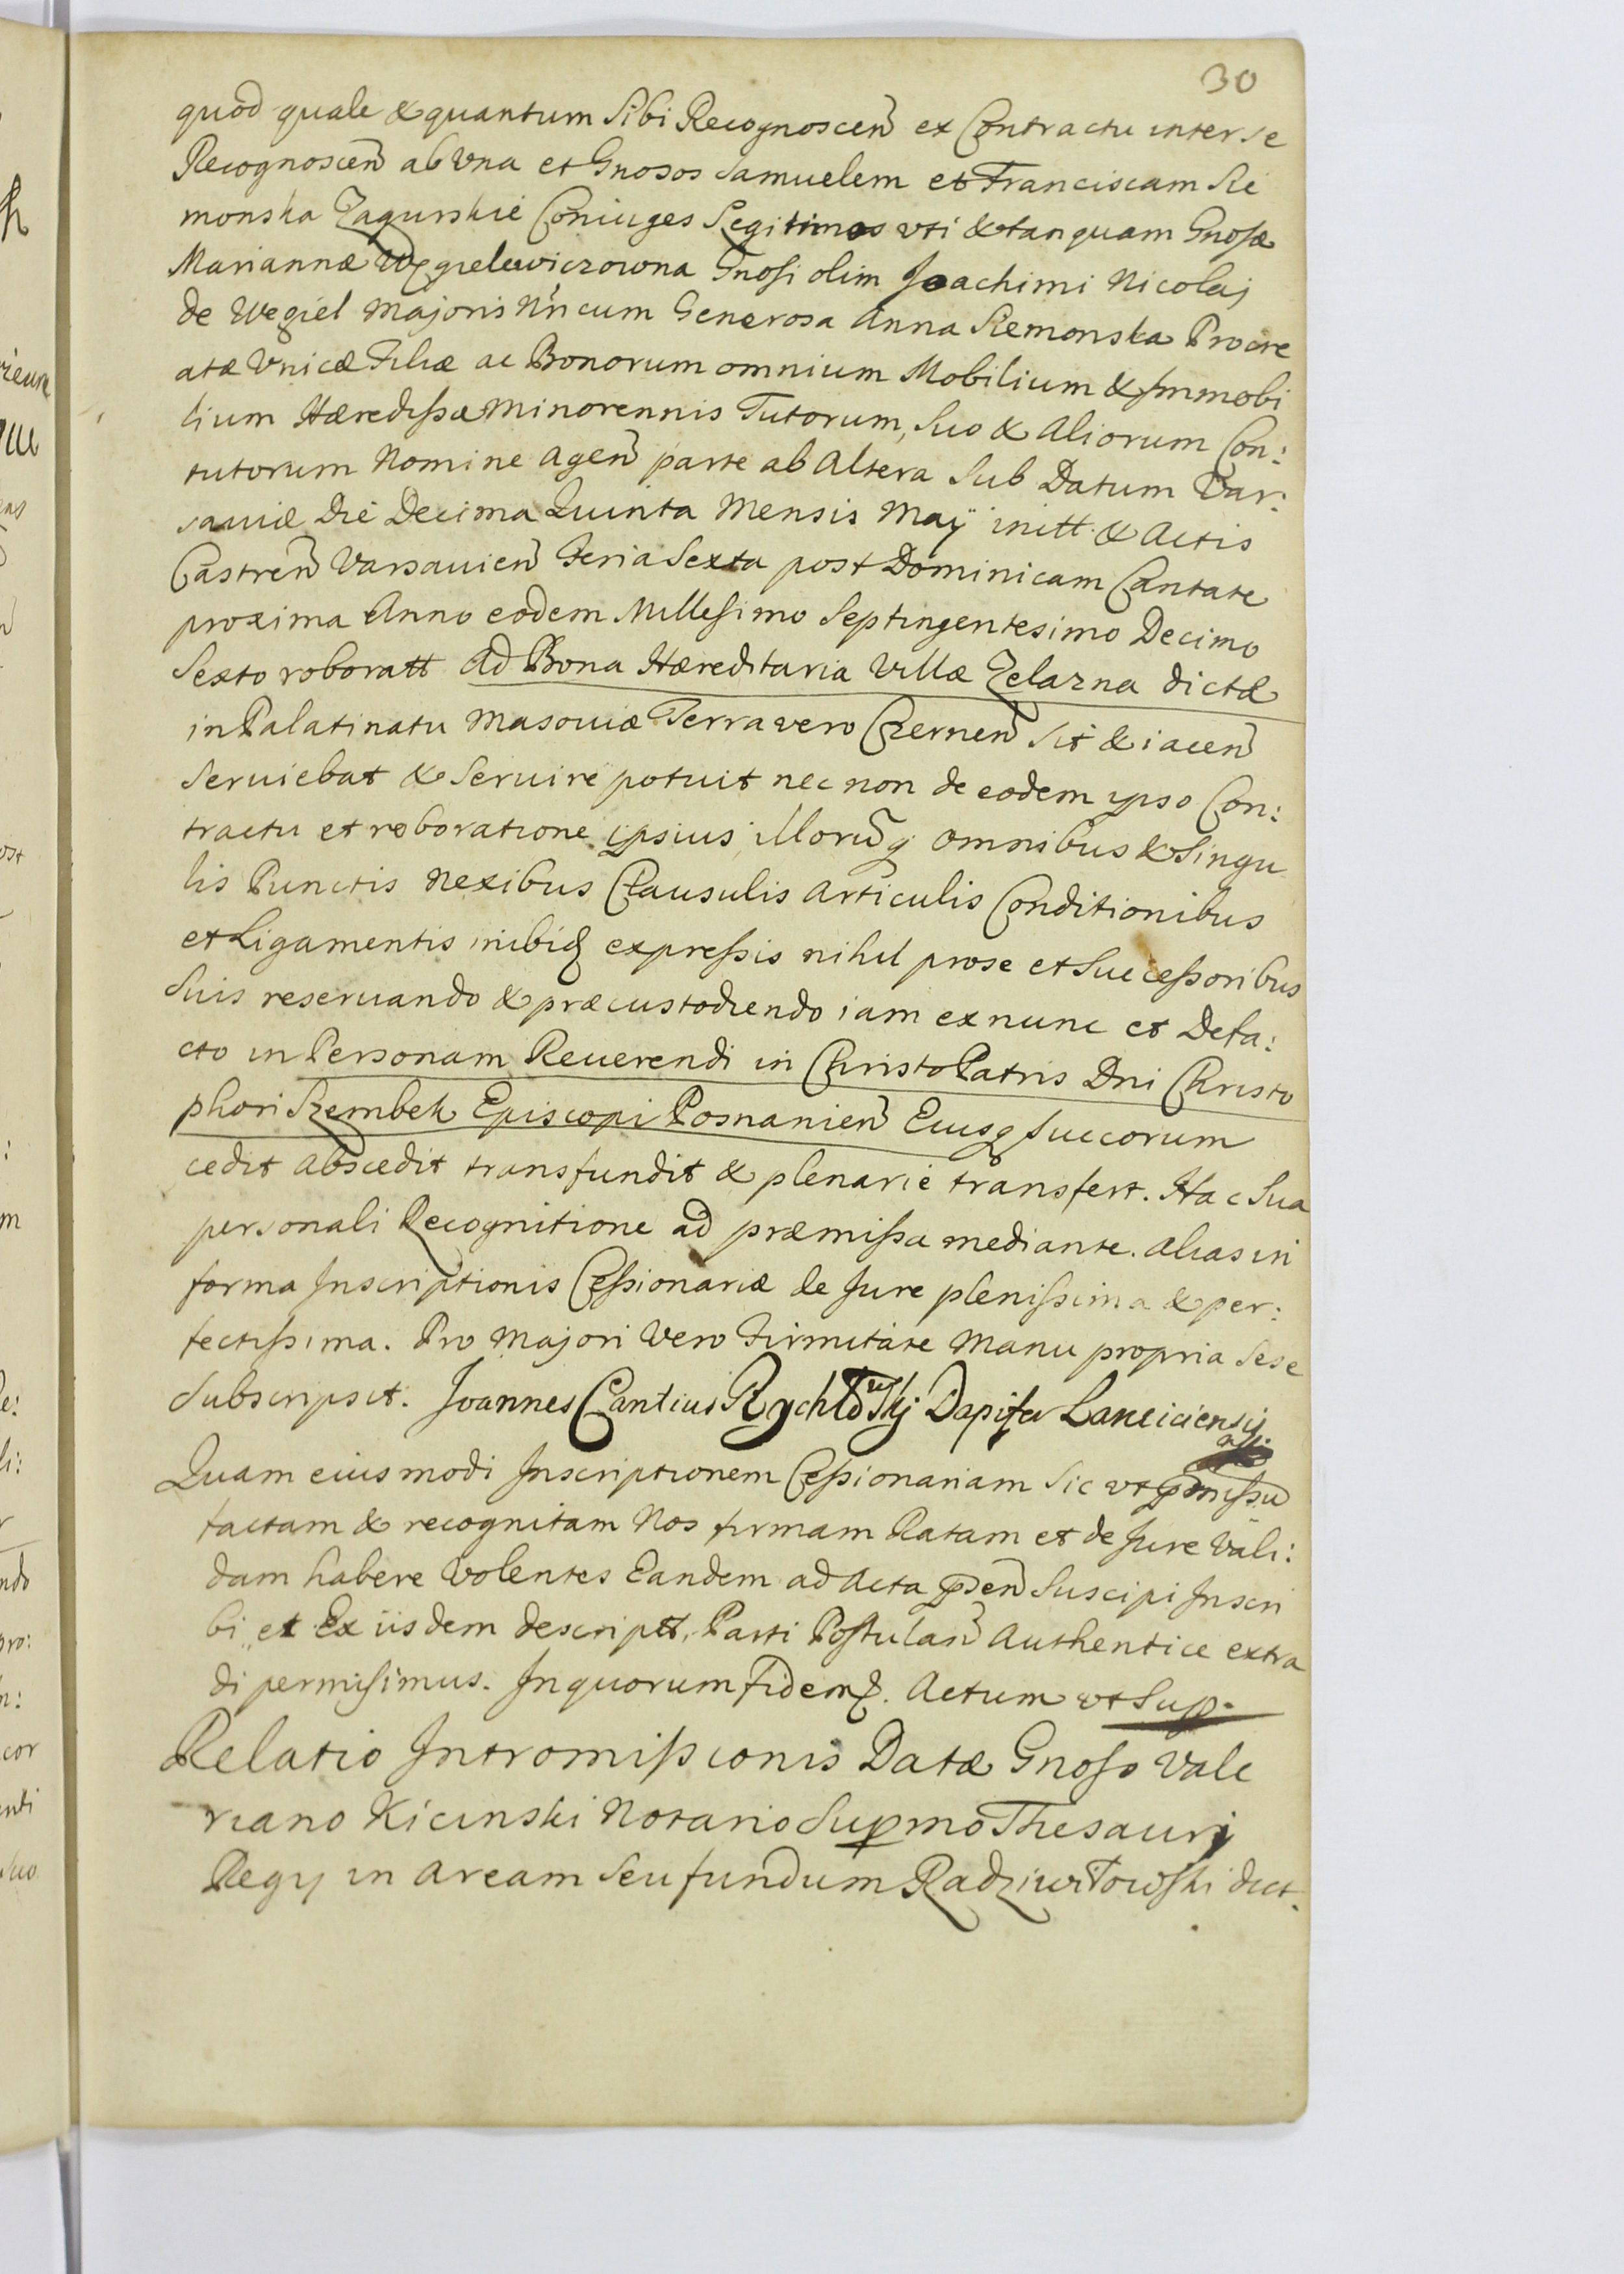 30
quod quale & quantum Sibi Recognoscen̄ ex Contractu inter se
Recognoscen̄ ab Vna et Gnosos Samuelem et Franciscam Sie
monska Zagurskie Coniuges Legitimos vti & tanquam Gnosæ
Mariannæ Węgielewiczowna Gnosi olim Joachimi Nicolaj
de Wegiel Majoris Nn̄ cum Generosa Anna Siemonska Procre
atæ Vnicæ Filiæ ac Bonorum omnium Mobilium & Immobi
lium Hæredissæ Minorennis Tutorum, Suo & Aliorum Con:
tutorum Nomine Agen̄ parte ab Altera Sub Datum Var:
saviæ Die Decima Quinta Mensis Maÿ initt & Actis
Castren̄ Varsavien̄ Feria Sexta post Dominicam Cantate
proxima Anno eodem Millesimo Septingentesimo Decimo
Sexto roboratt Ad Bona Hæreditaria Villæ Zelazna dictæ
in Palatinatu Masoviæ Terra vero Czernen̄ Sit & iacen̄
Serviebat & Servire potuit nec non de eodem ipso Con:
tractu et roboratione ipsius, illorūq omnibus & Singu
lis Punctis Nexibus Clausulis Articulis Conditionibus
et Ligamentis inibiq expressis nihil pro se et Successoribus
Suis reservando & præcustodiendo iam ex nunc et Defa:
cto in Personam Reuerendi in Christo Patris Dni Christo
phori Szembek Episcopi Posnanien̄ Eiusq succorum
cedit abscedit transfundit & plenarie transfert. Hac Sua
personali Recognitione ad præmissa mediante. Alias in
forma Inscriptionis Cessionariæ de Jure plenissima & per:
fectissima. Pro Majori Vero Firmitate Manu propria Sese
Subscripsit. Joannes Cantius Rychłowskj Dapifer Lanciciensis
Quam eiusmodi Inscriptionem Cessionariam Sic vt pmissū
factam & recognitam Nos firmam Ratam et de Jure Vali:
dam habere Volentes Eandem ad Acta p̄sen̄ Suscipi Inscri
bi et Ex iisdem descriptt, Parti Postulan̄ Authentice extra
di permisimus. In quorum Fidem. Actum vt Sup.
Relatio Intromissionis Datæ Gnoso Vale
riano Kicinski Notario Supmo Thesaurj
Regÿ in Aream Seu fundum Radziwiłowski dict.